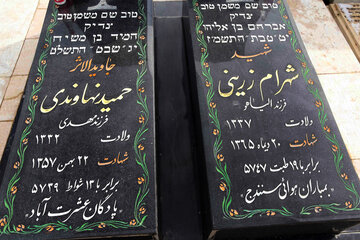 טוב שם משמן טוב
צדיק
אברהם בן אליהו
יט טבת התשמ"ז
شهید
شهرام زرینی
فرزند الیاهو
ولادت ۱۳۳۷
شهادت ۲۰ دیماه ۱۳۶۵
برابر با ۱۹ طبت ۵۷۴۷
بمباران هوائی سنندج
טוב שם משמן טוב
צדיק
חמיד בן משיח
י"ג שבט התשלט
جاویدالاثر
حمید نهاوندی
فرزند مهدی
ولادت ۱۳۳۲
شهادت ۲۲ بهمن ۱۳۵۷
برابر با ۱۳ شواط ۵۷۳۹
پادگان عشرت آباد